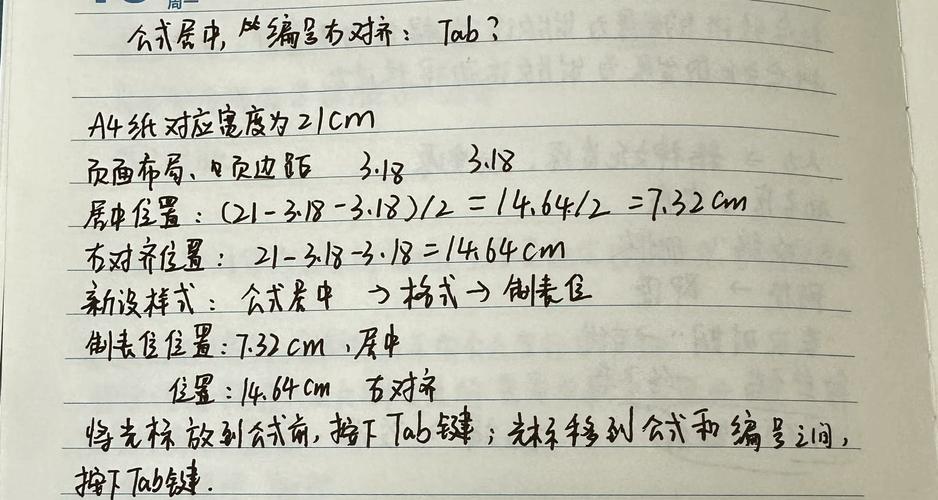 周一
公式居中, 编号右对齐: Tab?
A4纸对应宽度为21cm
页面布局、页边距 3.18 3.18
居中位置: (21-3.18-3.18)/2 = 14.64/2 = 7.32cm
右对齐位置: 21-3.18-3.18=14.64cm
新设样式: 公式居中 → 格式 → 制表位
制表位位置: 7.32cm、居中
位置: 14.64cm 右对齐
将光标放到公式前, 按下Tab键; 光标移到公式和编号之间,
按下Tab键.